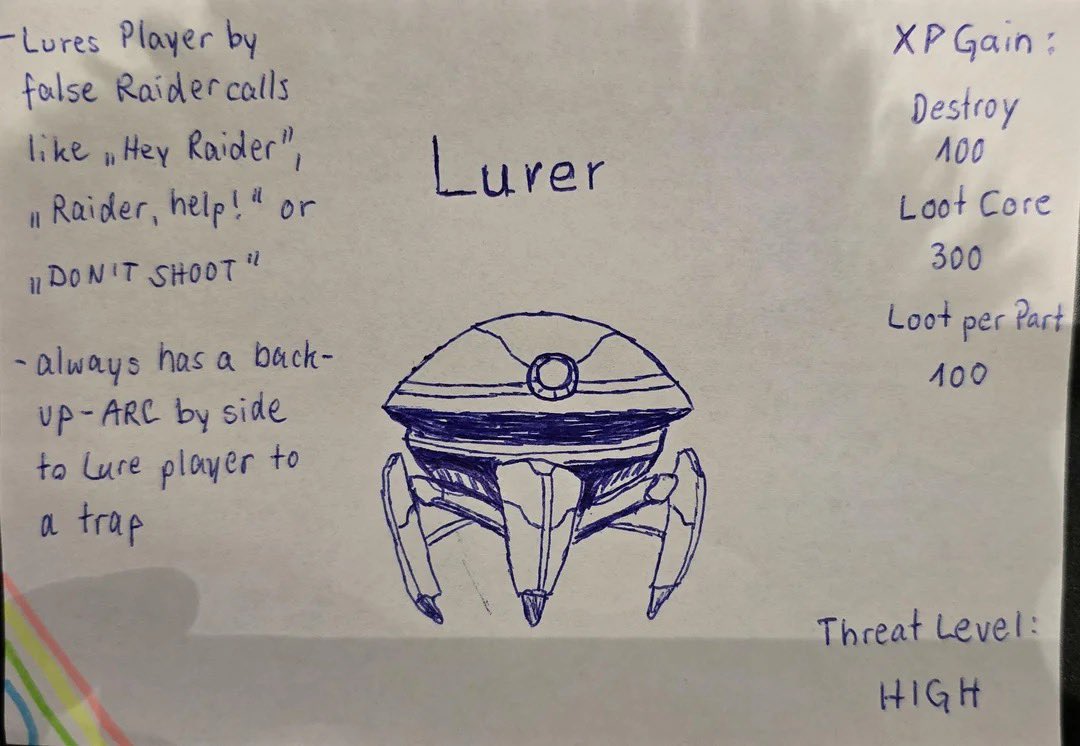 - Lures Player by
false Raider calls
like „Hey Raider”,
„Raider, help!“ or
„DON'T SHOOT“
- always has a back-
up-ARC by side
to lure player to
a trap
Lurer
XP Gain:
Destroy
100
Loot Core
300
Loot per Part
100
Threat Level:
HIGH